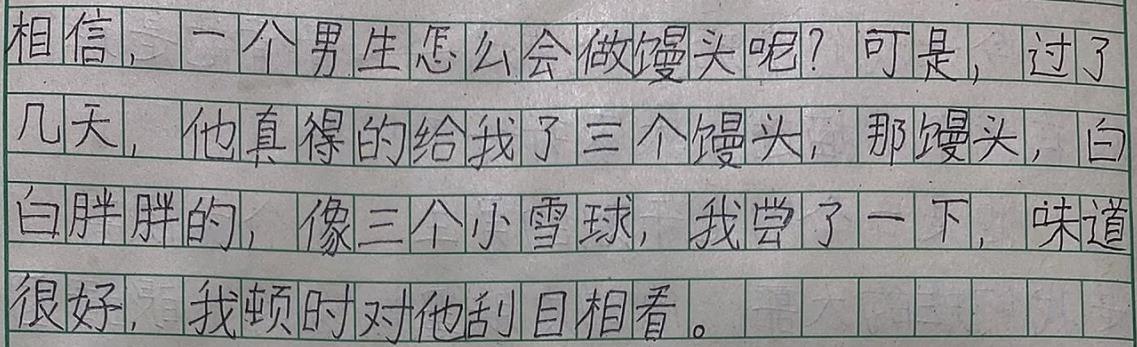 相信，一个男生怎么会做馒头呢？可是，过了
几天，他真得的给我了三个馒头，那馒头，白
白胖胖的，像三个小雪球，我尝了一下，味道
很好，我顿时对他刮目相看。